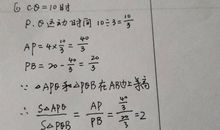 ⑥ CQ=10时
P、Q运动时间 10÷3=10/3
AP=4×10/3=40/3
PB=20-40/3=20/3
∵△APQ和△PQB在AB边上等高
∴ S△APQ/S△PQB = AP/PB = (40/3)/(20/3) = 2